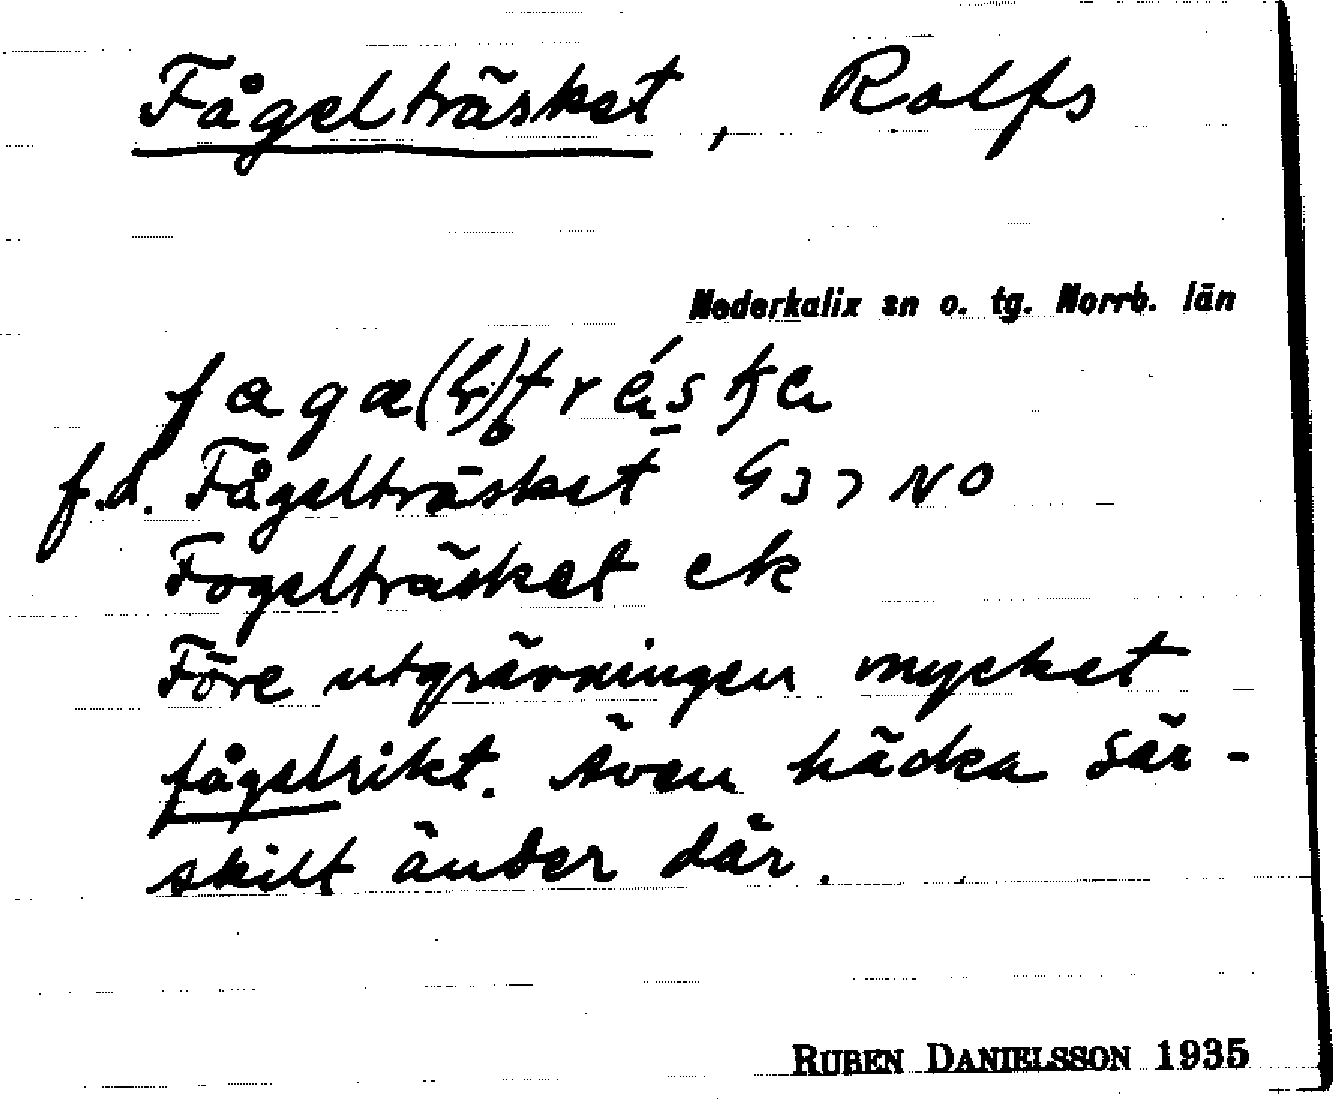 Fågelträsket, Rolfs
Nederkalix sn o. tg. Norrb. län
f.d. Fågelträsket NO
Fogelträsket ek
Före utgrävningen mycket
fågelrikt. Även häcka sär-
skilt änder där.
RUBEN DANIELSSON 1935